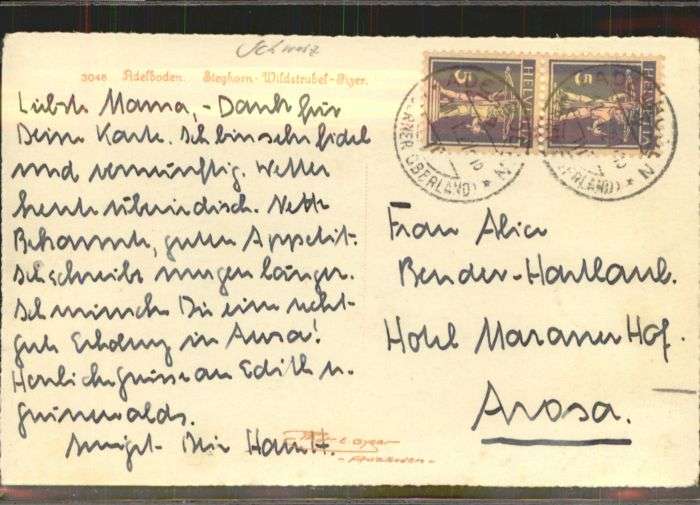 Schweiz
3048 Adelboden. Steghorn-Wildstrubel-Fizer.
Liebste Mama, - Dank für
Deine Karte. Ich bin sehr fidel
und vernünftig. Wetter
heute überirdisch. Nette
Bekannte, guten Appetit.
Ich schreibe morgen länger.
Ich wünsche Dir eine recht
gute Erholung in Arosa!
Herzliche Grüsse an Edith u.
Grünwalds.
Innigst Dein
HELVETIA
5
HELVETIA
5
ADELBODEN
(BERNER OBERLAND)
Frau Alice
Bender-Hartlaub.
Hotel Maraner Hof.
Arosa.